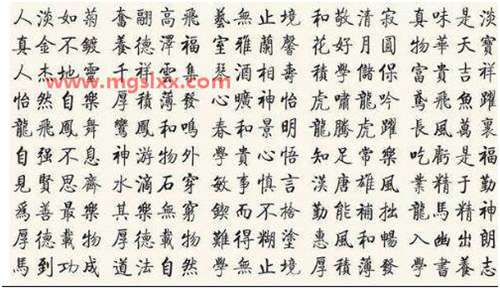 人淡如菊 奮翮高飛 藝無止境 和敬清寂 真味是淡
真金不鍍 養德澤福 室雅蘭馨 花好月圓 物華天寶
人杰地靈 千祥雲集 琴酒相壽 積學儲保 富貴吉祥
www.mgslxx.com
怡然自樂 厚積薄發 心曠神怡 虎嘯龍吟 鳶飛魚躍
龍飛鳳舞 鸞鳳和鳴 春和景明 龍騰虎躍 長風萬裹
自强不息 神游物外 學貴心悟 知足常樂 吃虧是福
見賢思齊 水滴石穿 敏事慎言 漢唐雄風 業精于勤
爲善最樂 其樂無窮 鍥而不捨 勤能補拙 龍馬精神
厚德載物 厚德載物 難得糊塗 惠風和暢 入幽出朗
馬到功成 道法自然 學無止境 厚積薄發 學書養志